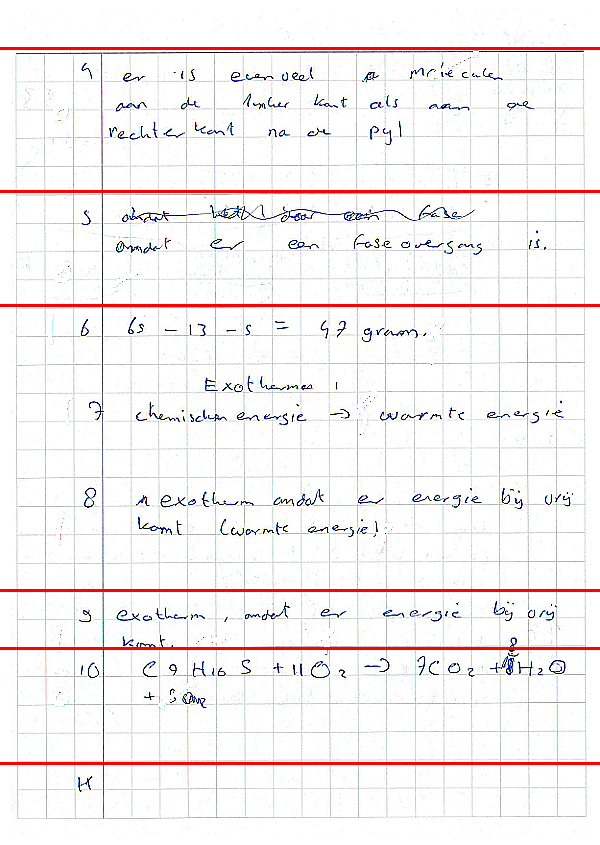 4 er is evenveel moleculen
aan de linker kant als aan de
rechter kant na de pyl
5
omdat er een fase overgang is.
6 65 - 13 - 5 = 47 gram.
Exothermes
7 chemischen energie → warmte energie
8 exotherm omdat er energie bij vrij
komt (warmte energie)
9 exotherm, omdat er energie bij vrij
komt.
10 C9H16S + 11O2 → 7CO2 + 8H2O
+ SO2
11